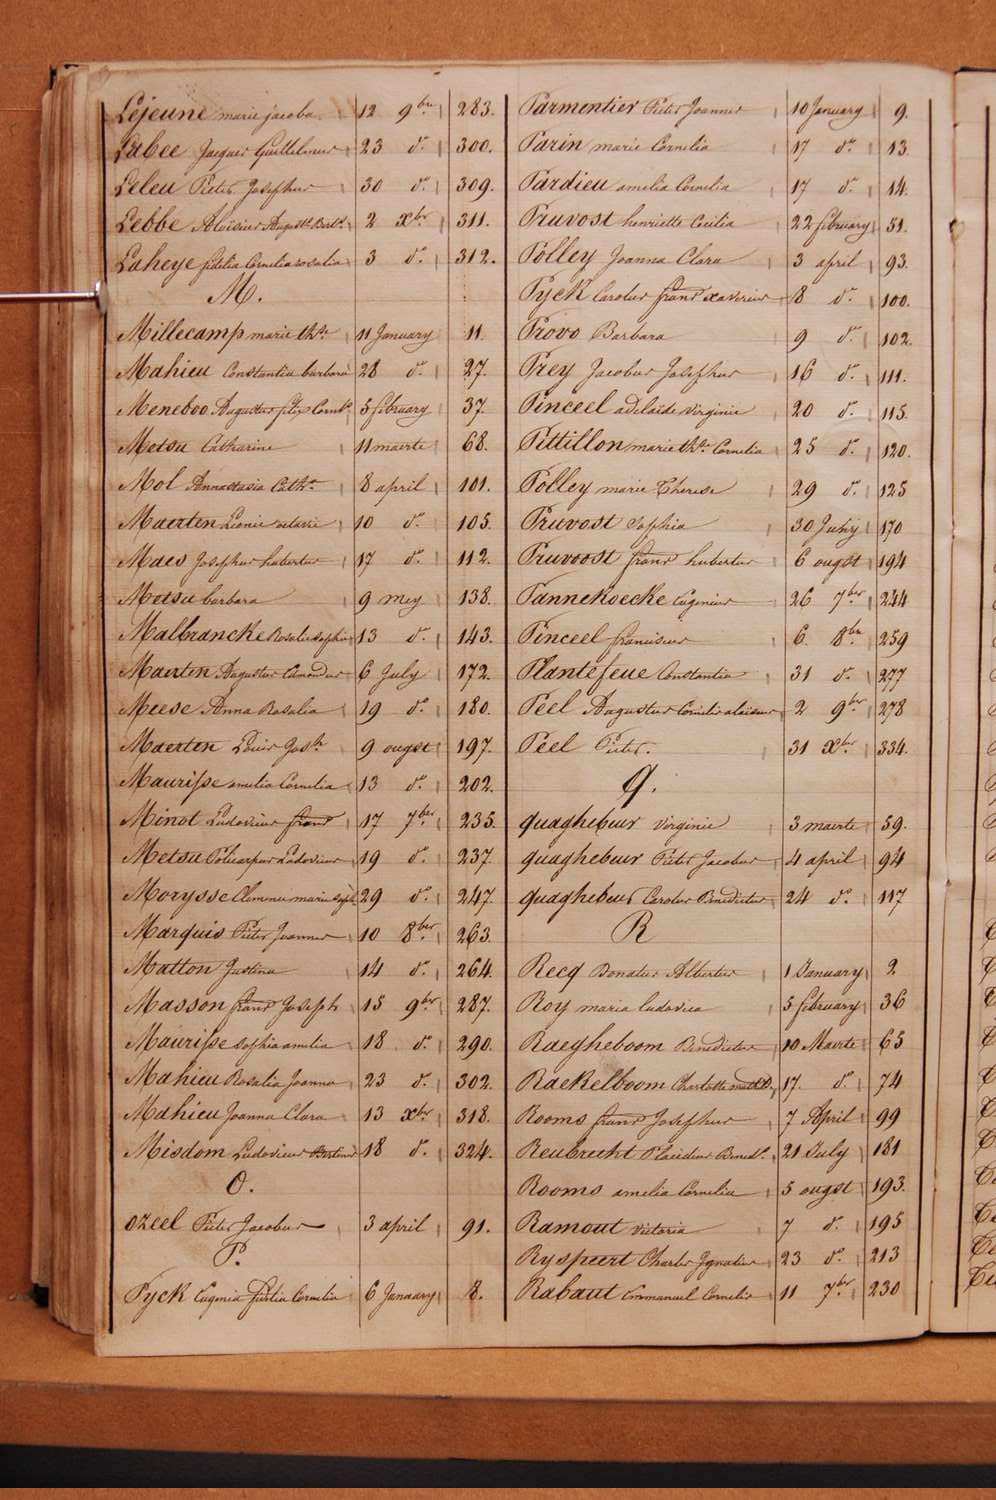 Lejeune marie jacoba 12 9bre 283.
Labee Jacques Guillelmus 23 do. 300.
Leleu Pieter Josephus 30 do. 309.
Lebbe Aloïsius Augusts Bert. 2 xbre 311.
Laheye fidelia Cornelia rosalia 3 do. 312.
M.
Millecamp marie thse 11 January 11.
Mahieu Constantia barbara 28 do. 27.
Meneboo Augustus Corns. 5 february 37.
Metsu Catharine 11 maerte 68.
Mol Annastasia Cathe 8 april 101.
Maerten Leonie octavie 10 do. 105.
Maes Josephus hubertus 17 do. 112.
Metsu barbara 9 mey 138.
Malbrancke Rosalie sophie 13 do. 143.
Maerten Augustus Edmondus 6 July 172.
Meese Anna Rosalia 19 do. 180.
Maerten Louis Josh 9 ougst 197.
Maurisse amelia Cornelia 13 do. 202.
Minot Ludovicus frans 17 7ber 235.
Metsu Policarpus Ludovicus 19 do. 237.
Morysse Clemence marie soph. 29 do. 247.
Marquis Pieter Joannes 10 8ber 263.
Matton Justina 14 do. 264.
Masson frans Joseph 15 9br 287.
Maurisse sophia amelia 18 do. 290.
Mahieu Rosalia Joanna 23 do. 302.
Mahieu Joanna Clara 13 xbr 318.
Misdom Ludovicus Bertinus 18 do. 324.
O.
ozeel Pieter Jacobus 3 april 91.
P.
Pyck Eugenia Justia Cornelia 6 January 8.
Parmentier Pieter Joannes 10 January 9.
Parin marie Cornelia 17 do. 13.
Pardieu amelia Cornelia 17 do. 14.
Pruvost henriette Cecilia 22 february 51.
Polley Joanna Clara 3 april 93.
Pyck Carolus frans xaverius 8 do. 100.
Provo Barbara 9 do. 102.
Prey Jacobus Josephus 16 do. 111.
Pinceel adelaïde virginie 20 do. 115.
Pettillon marie thse Cornelia 25 do. 120.
Polley marie Therese 29 do. 125
Pruvost sophia 30 Juny 170
Pruvoost frans hubertus 6 ougst 194
Pannekoecke Eugenius 26 7ber 244
Pinceel franciscus 6. 8bre 259
Plantefeve Constantia 31 do. 277
Peel Augustus Cornelis aloisius 2 9ber 278
Peel Pieter. 31 xber 334.
q.
quaghebeur virginie 3 maerte 59.
quaghebeur Pieter Jacobus 4 april 94
quaghebeur Carolus Benedictus 24 do. 117
R
Recq Donatus Albertus 1 January 2
Roy maria ludovica 5 february 36
Raegheboom Benedictus 10 Maerte 65
Raekelboom Charlotte mathilde 17. do. 74
Rooms frans Josephus 7 April 99
Reubrecht Placidus Bened. 21 July 181
Rooms amelia Cornelia 5 ougst 193.
Ramout victoria 7 do. 195
Ryspeert Charles Ignatius 23 do. 213
Rabaut Emmanuel Cornelis 11 7ber 230